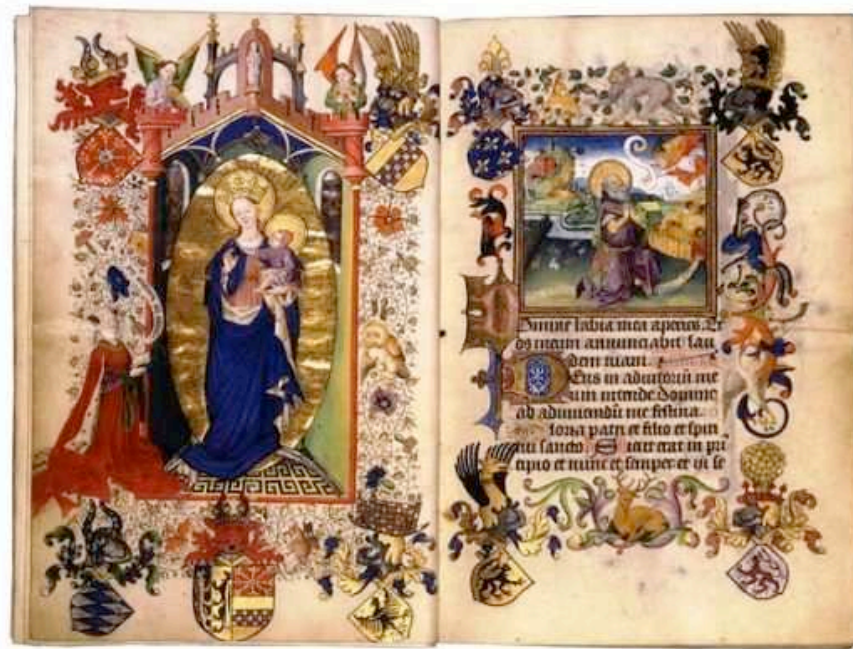 Domine labia mea aperies. Et
os meum annunciabit lau
dem tuam.
Deus in adiutoriū me
um intende Domine
ad adiuuandū me festina
Gloria patri et filio et spiri
tui sancto. Sicut erat in pri
cipio et nunc et semper et in se